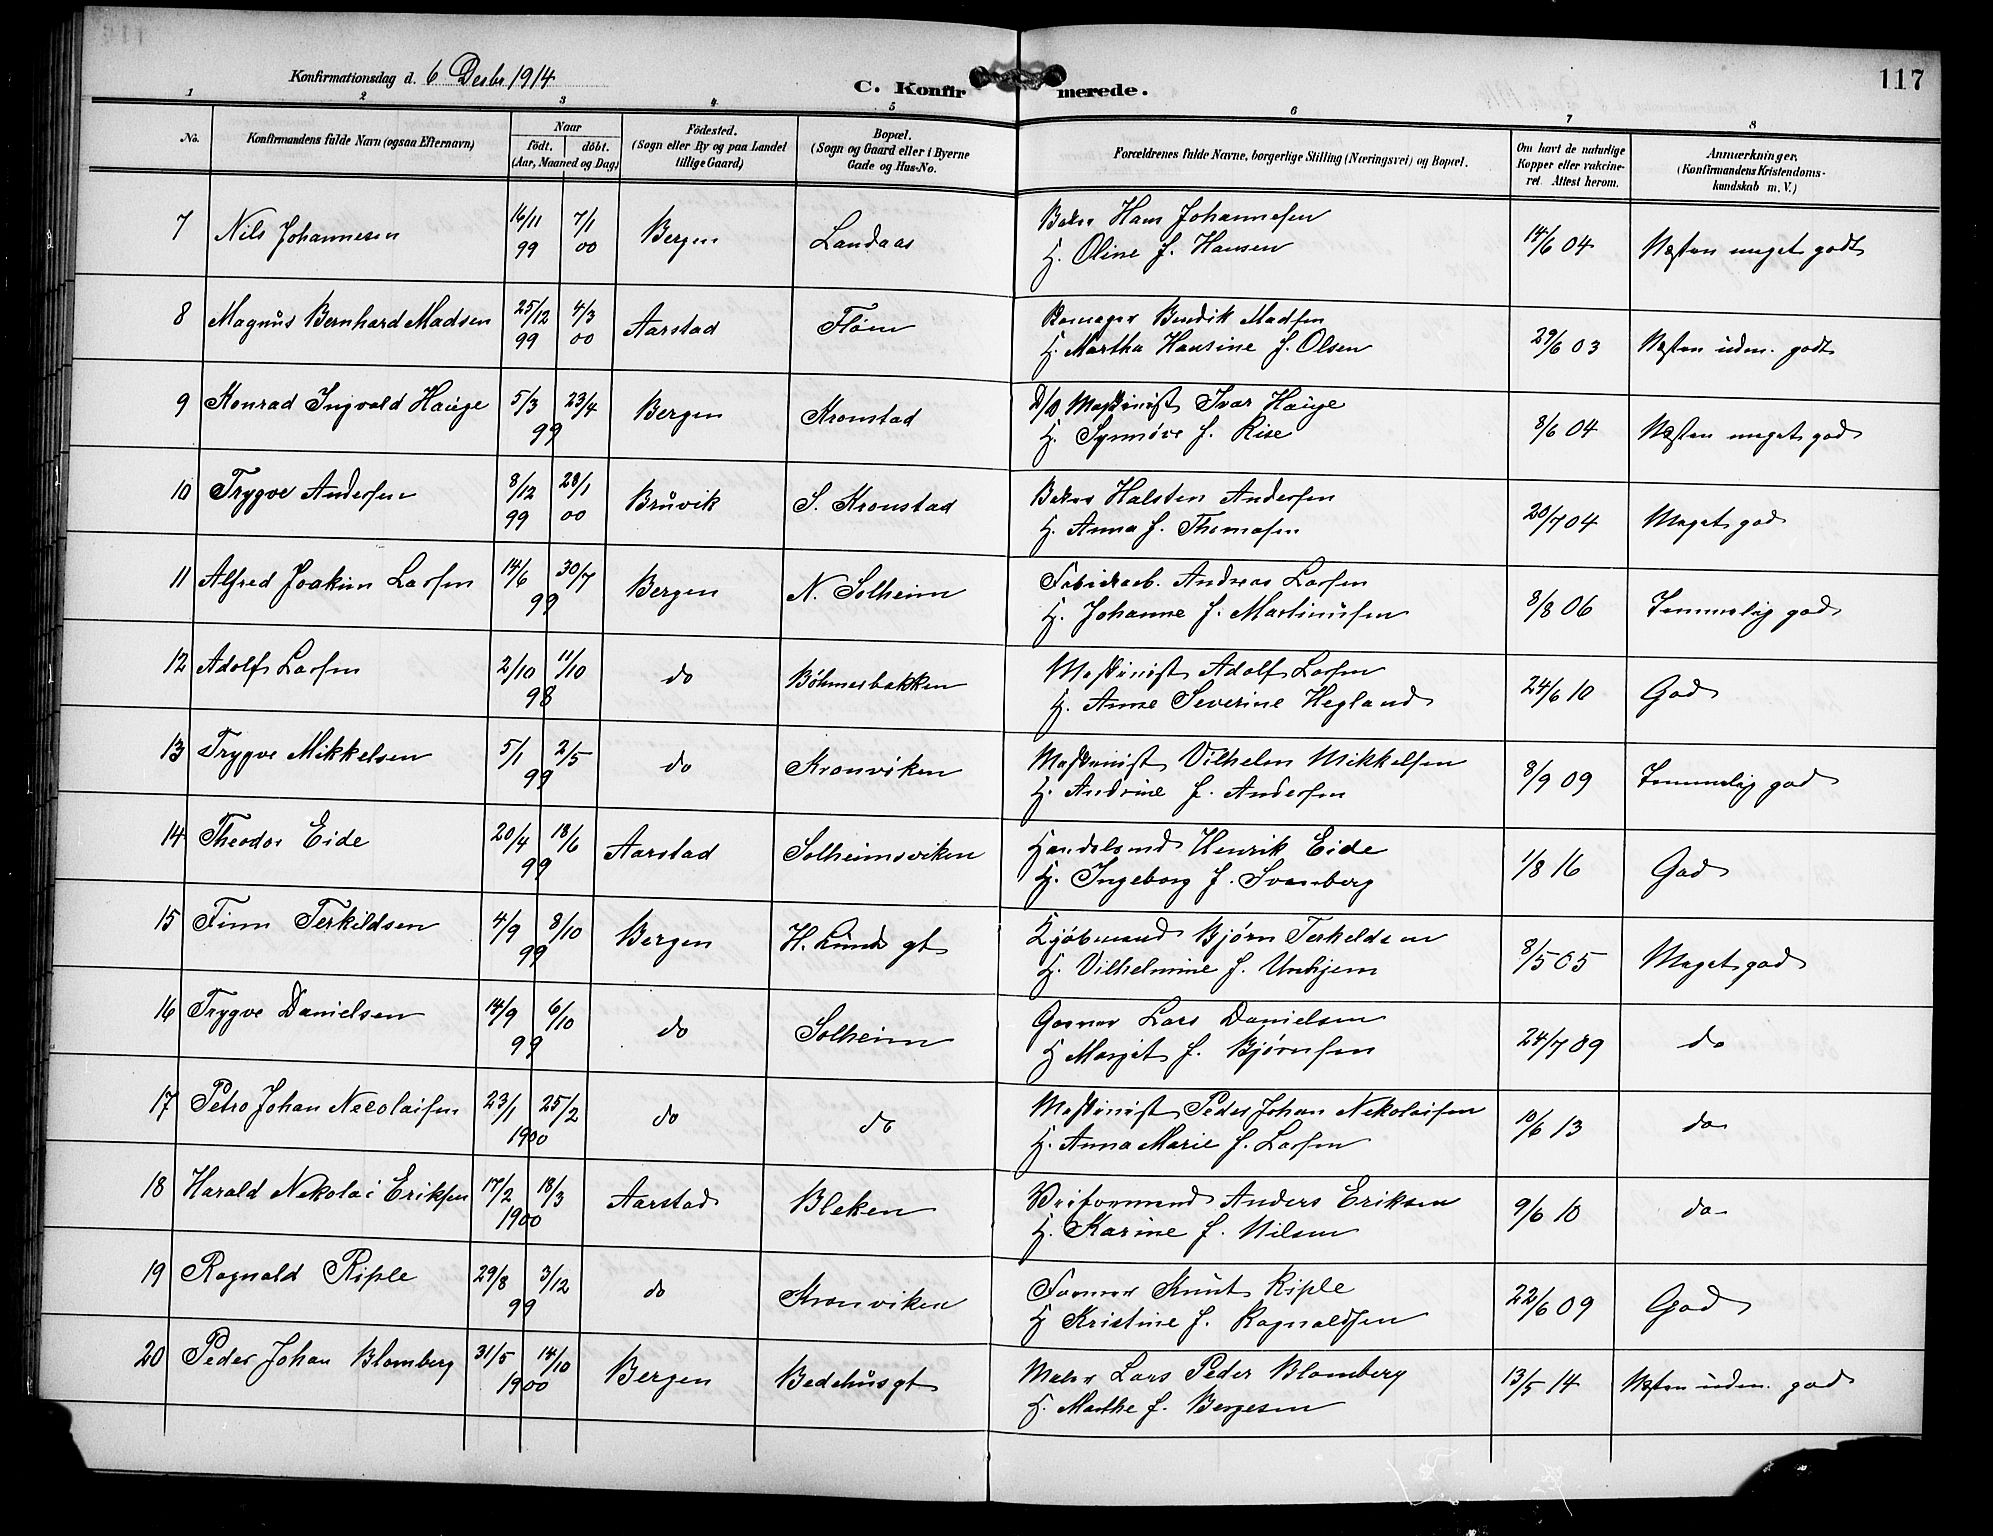 117
Konfirmationsdag d. 6 Desbr 1914
C. Konfirmerede.
1 2 3 4 5 6 7 8
No. Konfirmandens fulde Navn (ogsaa Efternavn) Naar født. døbt. (Aar, Maaned og Dag) Fødested. (Sogn eller By og paa Landet tillige Gaard) Bopæl. (Sogn og Gaard eller i Byerne Gade og Hus-No. Forældrenes fulde Navne, borgerlige Stilling (Næringsvei) og Bopæl. Om havt de naturlige Kopper eller vakcineret. Attest herom. Anmærkninger. (Konfirmandens Kristendomskundskab m. V.)
7 Nils Johannesen 16/11 99 7/1 00 Bergen Landaas Baker Hans Johannesen 14/6 04 Næsten meget godt
H. Oline f. Hansen
8 Magnus Bernhard Madsen 25/12 99 4/3 00 Aarstad Fløen Bendik Madsen 29/6 03 Næsten udm. godt
H. Martha Hansine f. Olsen
9 Konrad Ingvald Hauge 5/3 23/4 99 Bergen Kronstad D/S Maskinist Ivar Hauge 8/6 04 Næsten meget god
H. Synnøve f. Rise
10 Trygve Andersen 8/12 99 28/1 00 Bruvik S. Kronstad Baker Halsten Andersen 20/7 04 Meget god
H. Anna f. Thomasen
11 Alfred Joakim Larsen 14/6 30/7 99 Bergen N. Solheim Fabrikarb. Andreas Larsen 8/8 06 Temmelig god
H. Johanne f. Martinusen
12 Adolf Larsen 2/10 11/10 98 do Böhmerbakken Maskinist Adolf Larsen 24/6 10 God
H. Anne Severine Hegland
13 Trygve Mikkelsen 5/1 2/5 99 do Kronviken Maskinist Vilhelm Mikkelsen 8/9 09 Temmelig god
H. Andrine f. Andersen
14 Theodor Eide 20/4 18/6 99 Aarstad Solheimsviken Handelsmd Henrik Eide 1/8 16 God
H. Ingeborg f. Svanberg
15 Finn Terkildsen 4/9 8/10 99 Bergen H. Lunds gt Kjøbmand Bjørn Terkeldsen 8/5 05 Meget god
H. Vilhelmine f. Unhjem
16 Trygve Danielsen 14/9 6/10 99 do Solheim Garver Lars Danielsen 24/7 09 do
H Marjit f. Bjørnsen
17 Petro Johan Necolaisen 23/1 25/2 1900 do do Maskinist Peder Johan Nekolaisen 10/6 13 do
H. Anna Marie f. Larsen
18 Harald Nekolai Eriksen 17/2 18/3 1900 Aarstad Bleken Anders Eriksen 9/6 10 do
H. Karine f. Nilsen
19 Ragnald Riple 29/8 3/12 99 do Kronviken Former Knut Riple 22/6 09 God
H Kristine f. Ragnaldsen
20 Peder Johan Blomberg 31/5 14/10 1900 Bergen Bedehusgt Maler Lars Peder Blomberg 13/5 14 Næsten udm. god
H. Marthe f. Bergesen